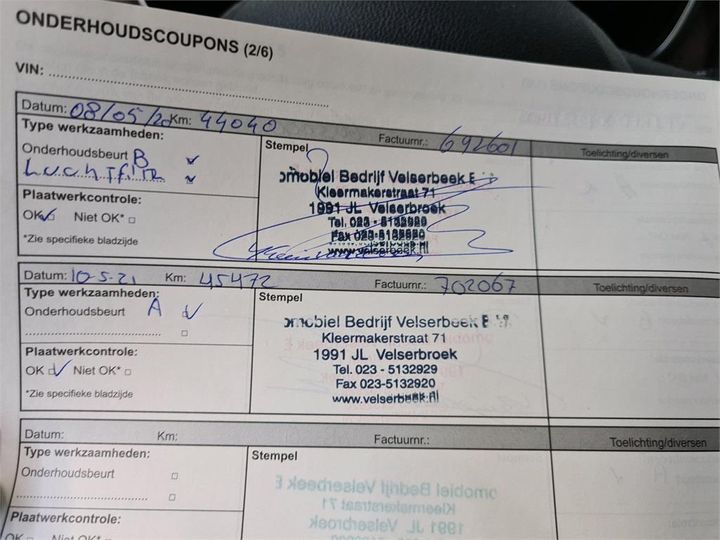 ONDERHOUDSCOUPONS (2/6)
VIN:
Datum: 08/05/20 Km: 44040 Factuurnr.: 692601 Toelichting/diversen
Type werkzaamheden:
Onderhoudsbeurt B
Luchtfilter
Plaatwerkcontrole:
OK Niet OK*
*Zie specifieke bladzijde
Stempel
omobiel Bedrijf Velserbeek
Kleermakerstraat 71
1991 JL Velserbroek
Tel. 023 - 5132929
Fax 023-5132920
www.velserbeek.nl
Datum: 10-5-21 Km: 45472 Factuurnr.: 702067 Toelichting/diversen
Type werkzaamheden:
Onderhoudsbeurt A
Plaatwerkcontrole:
OK Niet OK*
*Zie specifieke bladzijde
Stempel
omobiel Bedrijf Velserbeek
Kleermakerstraat 71
1991 JL Velserbroek
Tel. 023 - 5132929
Fax 023-5132920
www.velserbeek.nl
Datum: Km: Factuurnr.: Toelichting/diversen
Type werkzaamheden:
Onderhoudsbeurt
Plaatwerkcontrole:
OK Niet OK*
Stempel